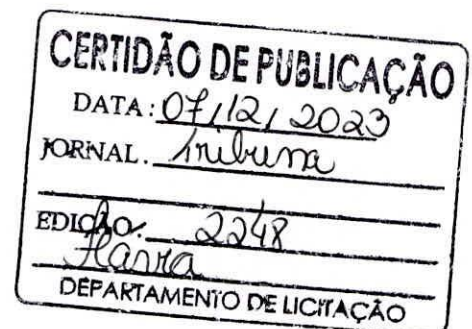 CERTIDÃO DE PUBLICAÇÃO
DATA: 07/12/2023
JORNAL. Tribuna
EDIÇÃO. 2248
Flávia
DEPARTAMENTO DE LICITAÇÃO